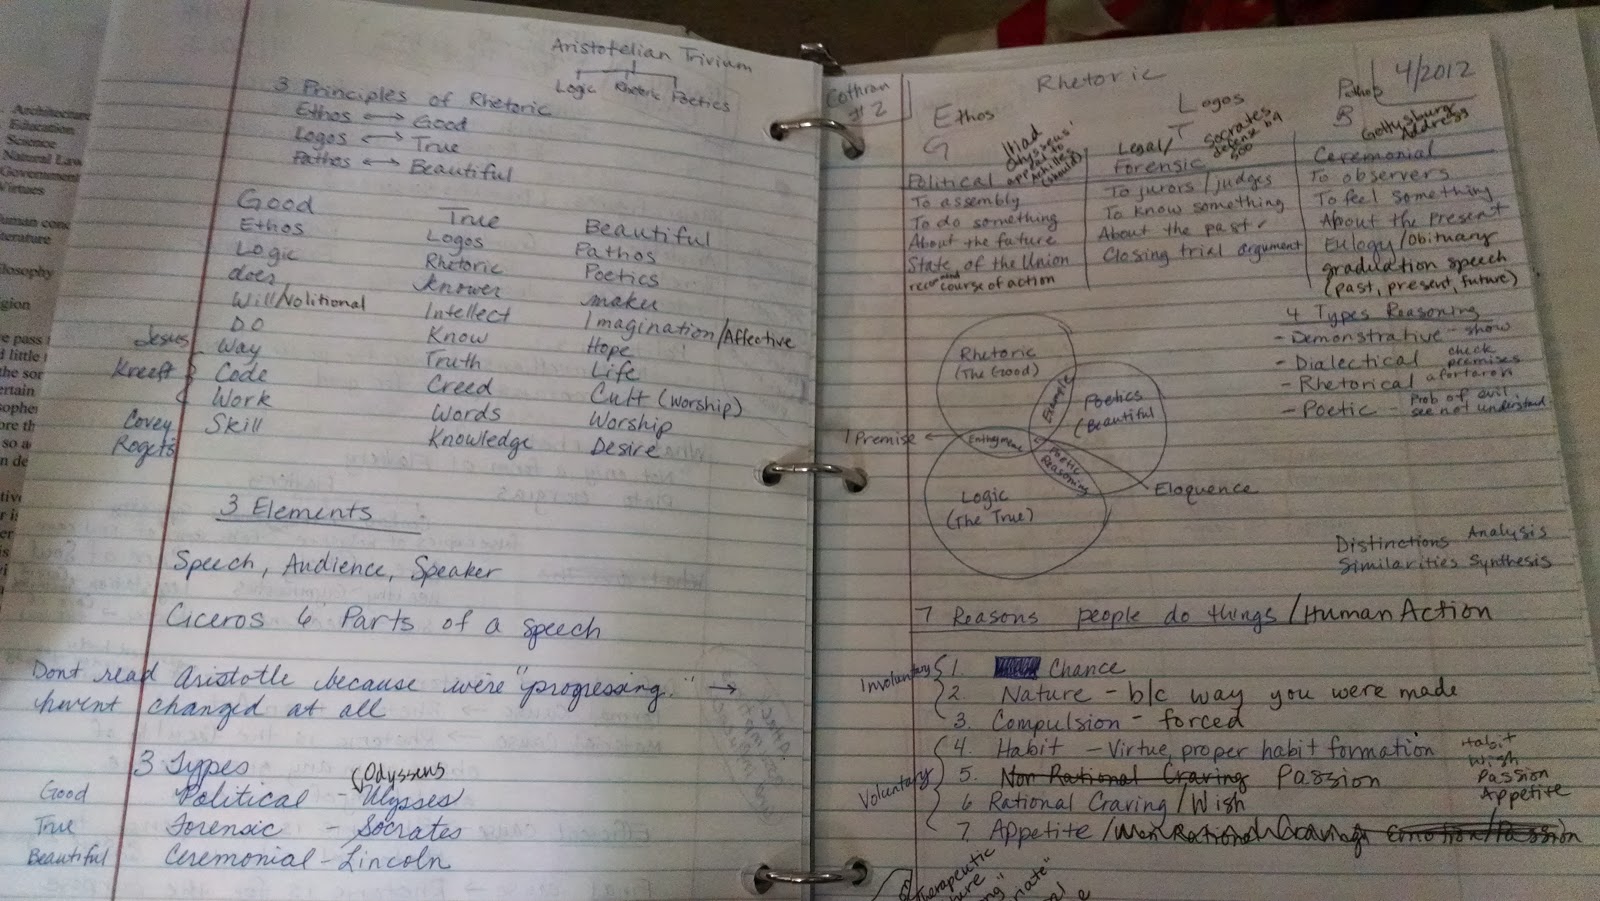 Architecture
Education
Science
Natural Law
Government
Virtues
Aristotelian Trivium
Logic Rhetoric Poetics
3 Principles of Rhetoric
Ethos ↔ Good
Logos ↔ True
Pathos ↔ Beautiful
Good True Beautiful
Ethos Logos Pathos
Logic Rhetoric Poetics
does knower maker
Will/Volitional Intellect Imagination/Affective
Do Know Hope
Jesus Way Truth Life
Kreeft Code Creed Cult (worship)
Work Words Worship
Covey Skill Knowledge Desire
Rogets
3 Elements
Speech, Audience, Speaker
Ciceros 6 Parts of a speech
Dont read Aristotle because we're "progressing." →
havent changed at all
3 Types
Good Political - Ulysses (Odysseus
True Forensic - Socrates
Beautiful Ceremonial - Lincoln
Cothran
#2
Rhetoric
4/2012
Ethos Logos Pathos
G T B
Iliad
Odysseus'
appeal to
Achilles
(should)
Socrates
defense b4
500
Gettysburg
Address
Political Legal/Forensic Ceremonial
To assembly To jurors/judges To observers
To do something To know something To feel something
About the future About the past About the present
State of the Union Closing trial argument Eulogy/Obituary
recommend course of action graduation speech
(past, present, future)
4 Types Reasoning
- Demonstrative - show
- Dialectical check premises
- Rhetorical a fortaron
- Poetic - Prob of evil
see not understand
Rhetoric
(The Good)
Example
Poetics
(Beautiful
1 Premise ← Enthymeme
Poetic
Reasoning
Logic
(The True)
Eloquence
Distinctions Analysis
Similarities Synthesis
7 Reasons people do things/Human Action
Involuntary
1. Chance
2. Nature - b/c way you were made
3. Compulsion - forced
Voluntary
4. Habit - Virtue, proper habit formation
5. Non Rational Craving Passion
6 Rational Craving/Wish
7. Appetite/Non Rational Craving Emotion/Passion
Habit
Wish
Passion
Appetite
Therapeutic